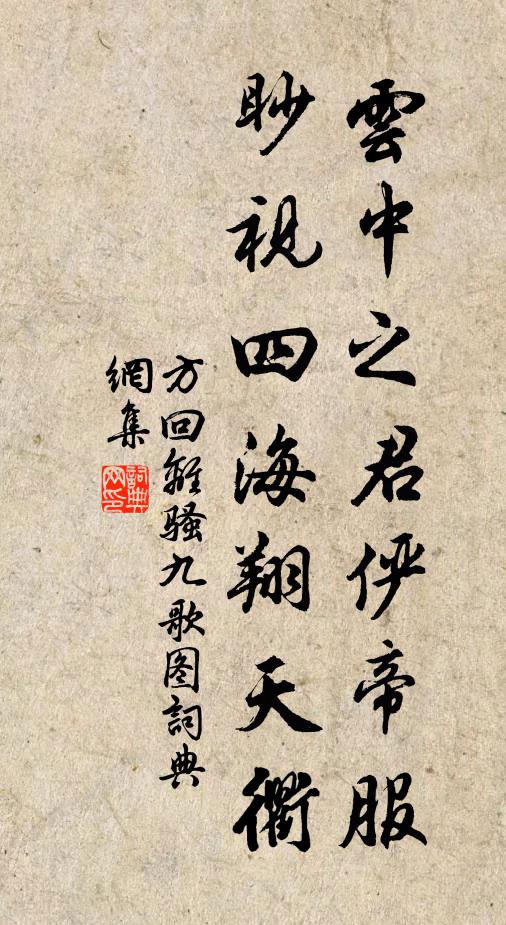 雲中之君侔帝服
眇視四海翔天衢
方回離騷九歌图詞典
網集
詞典網印